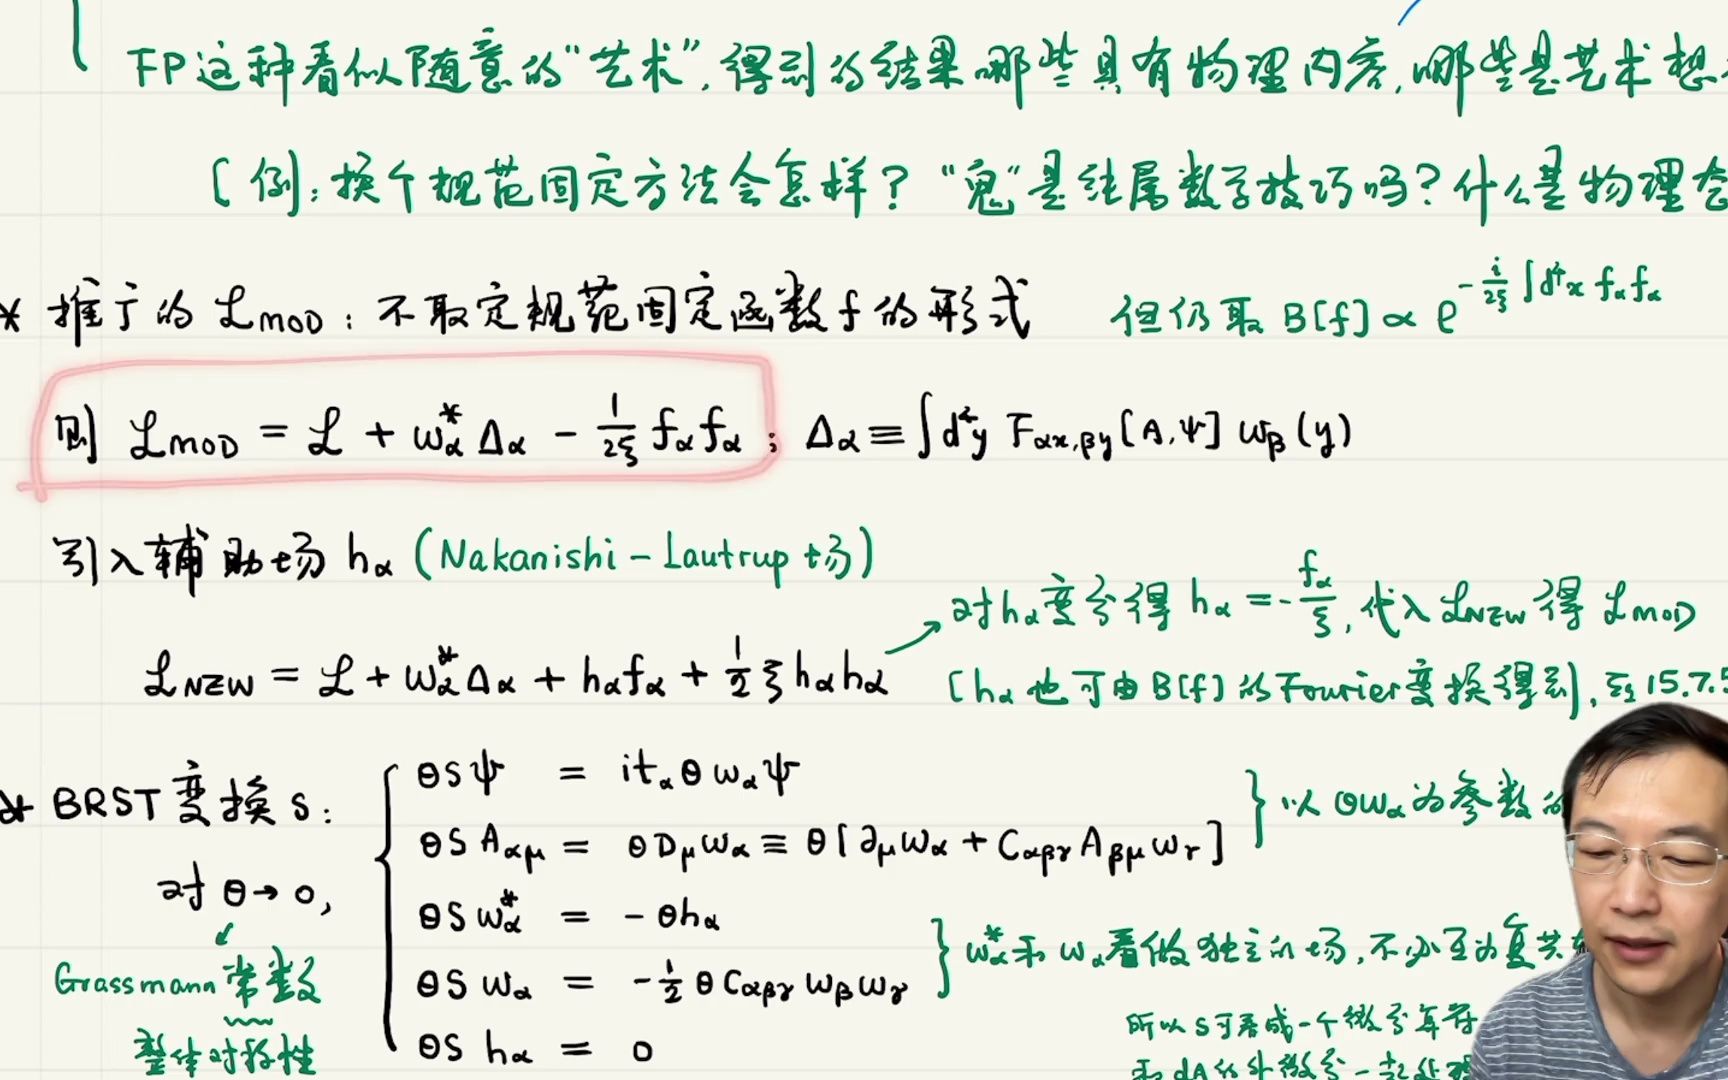 FP这种看似随意的“艺术”,得到的结果哪些具有物理内容,哪些是艺术想
[例:换个规范固定方法会怎样?“鬼”是纯属数学技巧吗?什么是物理态
* 推广的 ℒ_MOD:不取定规范固定函数f的形式 但仍取 B[f] ∝ e^{-\frac{i}{2ξ}∫d⁴x f_α f_α}
则 ℒ_MOD = ℒ + ω*_α Δ_α - \frac{1}{2ξ} f_α f_α ; Δ_α ≡ ∫d⁴y F_{αx,βy}[A,ψ] ω_β(y)
引入辅助场 h_α (Nakanishi-Lautrup场)
对h_α变分得 h_α = -\frac{f_α}{ξ},代入ℒ_NEW得 ℒ_MOD
ℒ_NEW = ℒ + ω*_α Δ_α + h_α f_α + \frac{1}{2} ξ h_α h_α
[h_α也可由B[f]的Fourier变换得到], 15.7.5
* BRST变换 s:
对 θ→0,
Grassmann常数
整体对称性
θsψ = it_α θω_α ψ
θsA_{αμ} = θD_μ ω_α ≡ θ[∂_μ ω_α + C_{αβγ} A_{βμ} ω_γ]
} 以 θω_α为参数的
θsω*_α = -θh_α
θsω_α = -\frac{1}{2} θC_{αβγ} ω_β ω_γ
} ω*_α和 ω_α看做独立的场,不必互为复共
θs h_α = 0
所以s可看成一个微分算符
和 dA的外微分一起处理